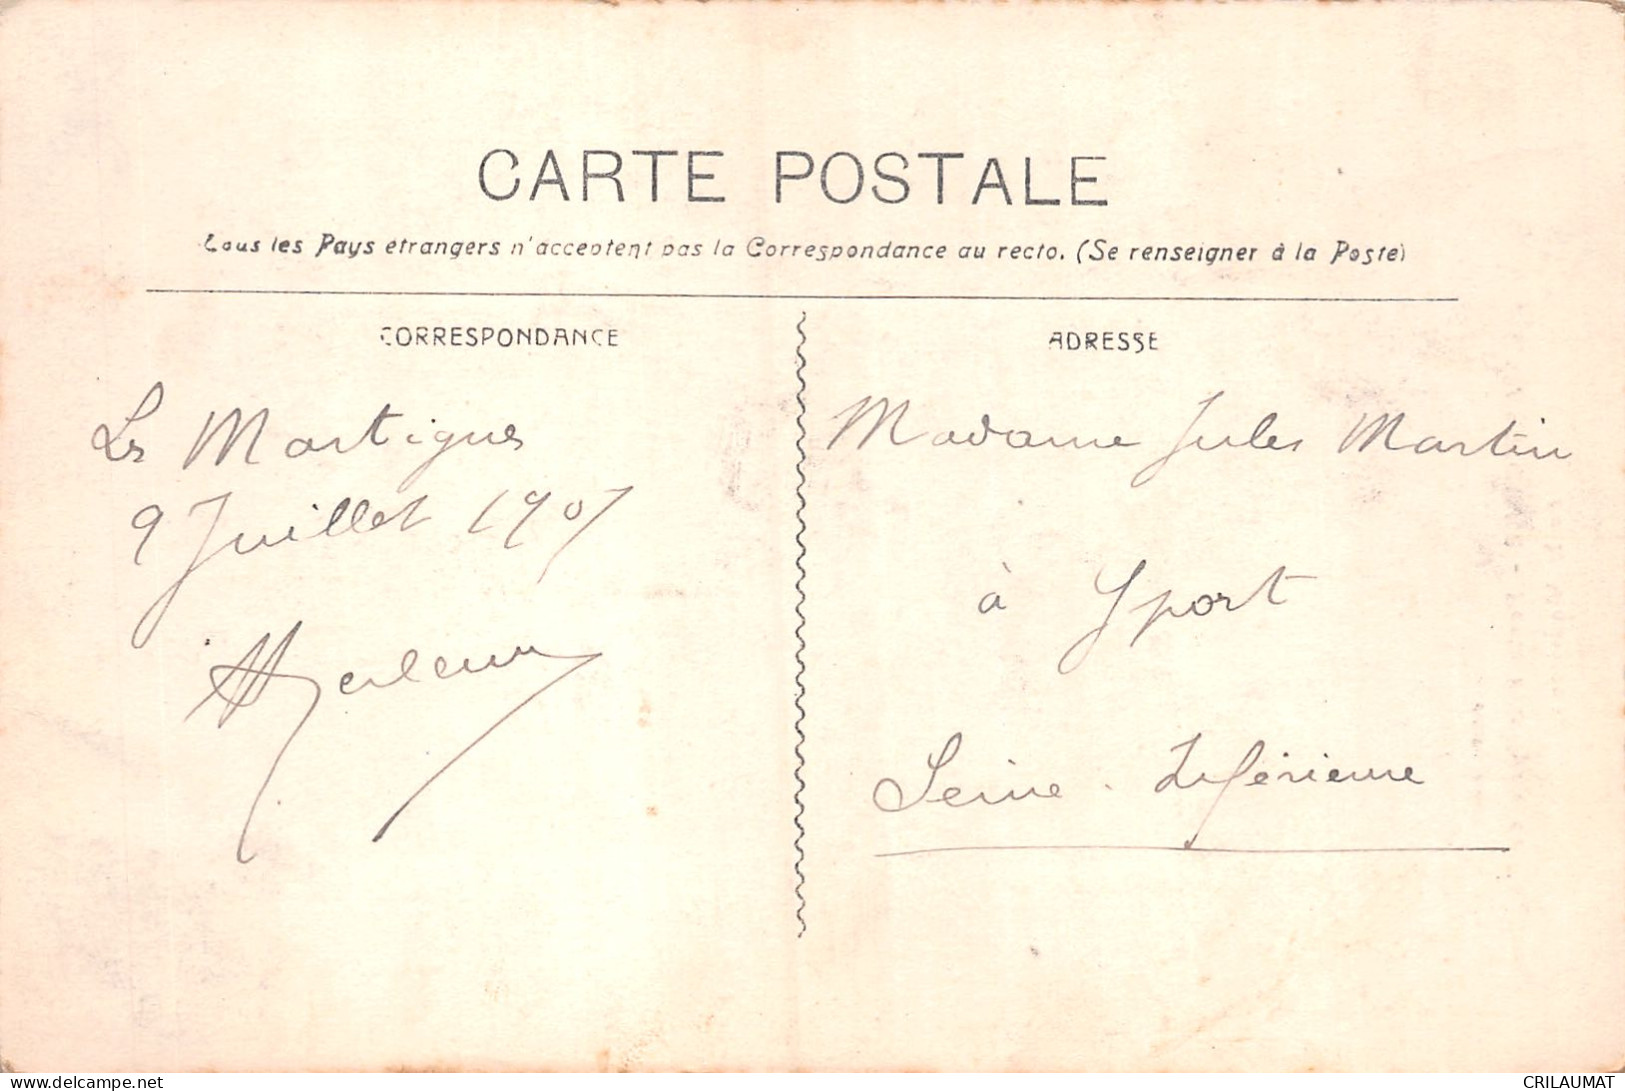 CARTE POSTALE
Tous les Pays étrangers n'acceptent pas la Correspondance au recto. (Se renseigner à la Poste)
CORRESPONDANCE
Les Martigues
9 Juillet 1907
ADRESSE
Madame Jules Martin
à Yport
Seine - Inférieure
www.delcampe.net
CRILAUMAT